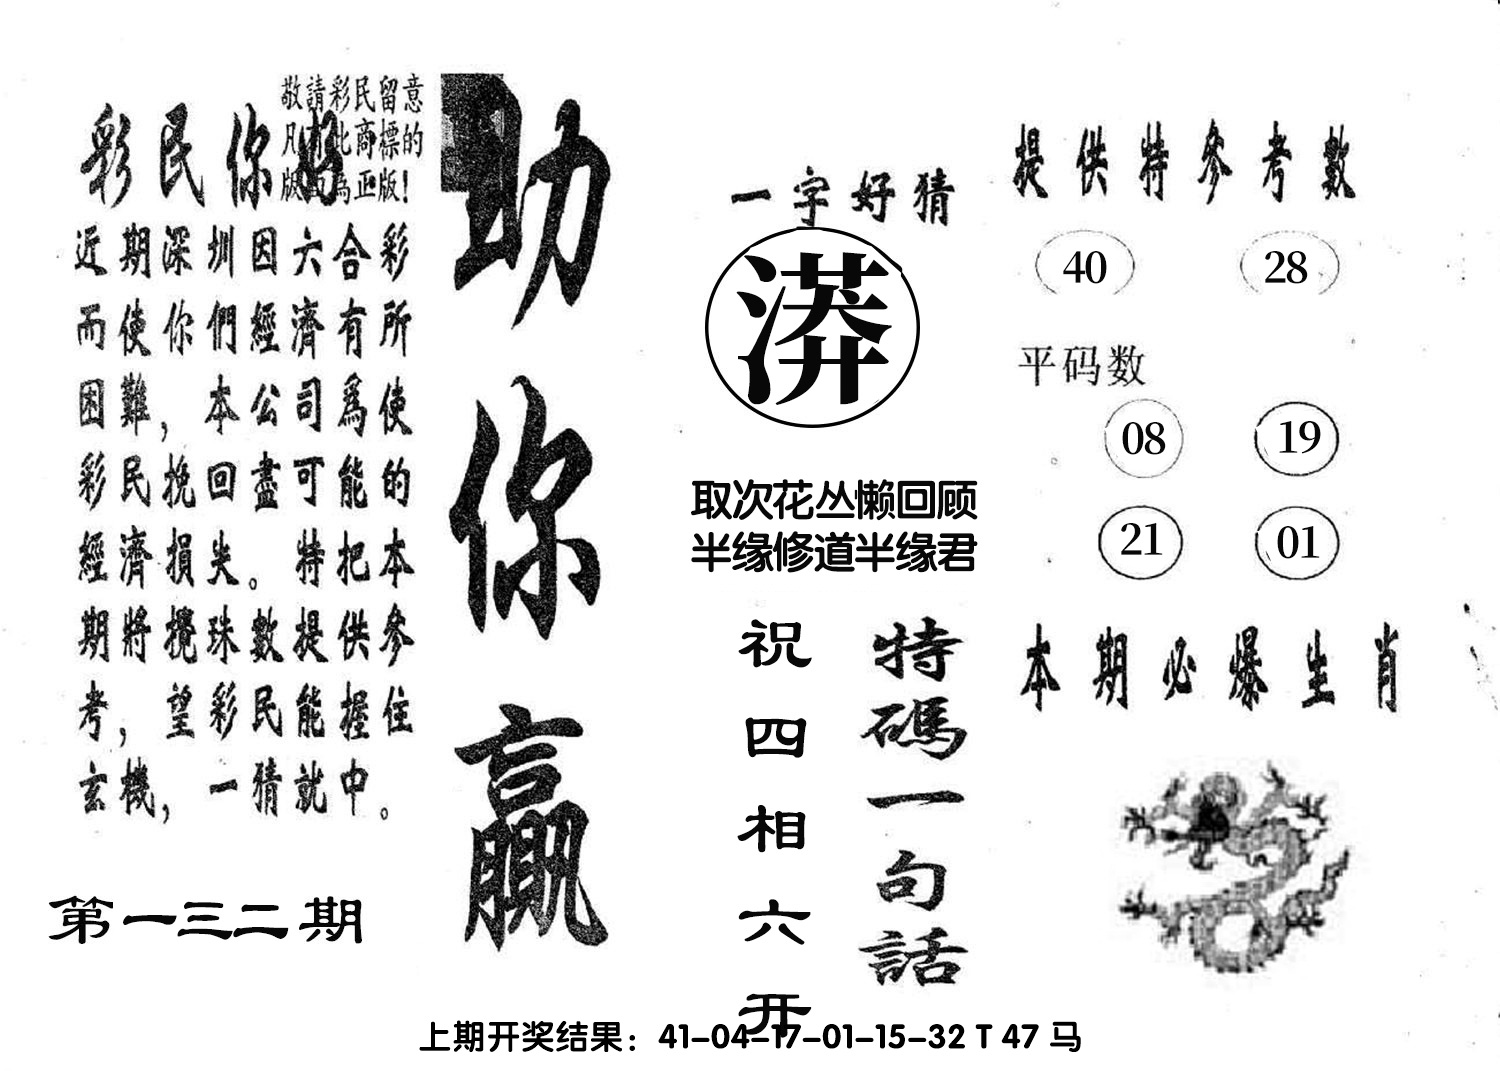 敬請彩民留意
凡有此商標的
版面為正版！
彩民你好
近期深圳因六合彩
而使你們經濟有所
困難，本公司爲使
彩民挽回盡可能的
經濟損失。特把本
期將攪珠數提供參
考，望彩民能握住
玄機，一猜就中。
第一三二期
助你贏
一字好猜
漭
取次花丛懒回顾
半缘修道半缘君
特碼一句話
祝四相六开
提供特參考數
40 28
平码数
08 19
21 01
本期必爆生肖
上期开奖结果：41-04-17-01-15-32 T 47 马